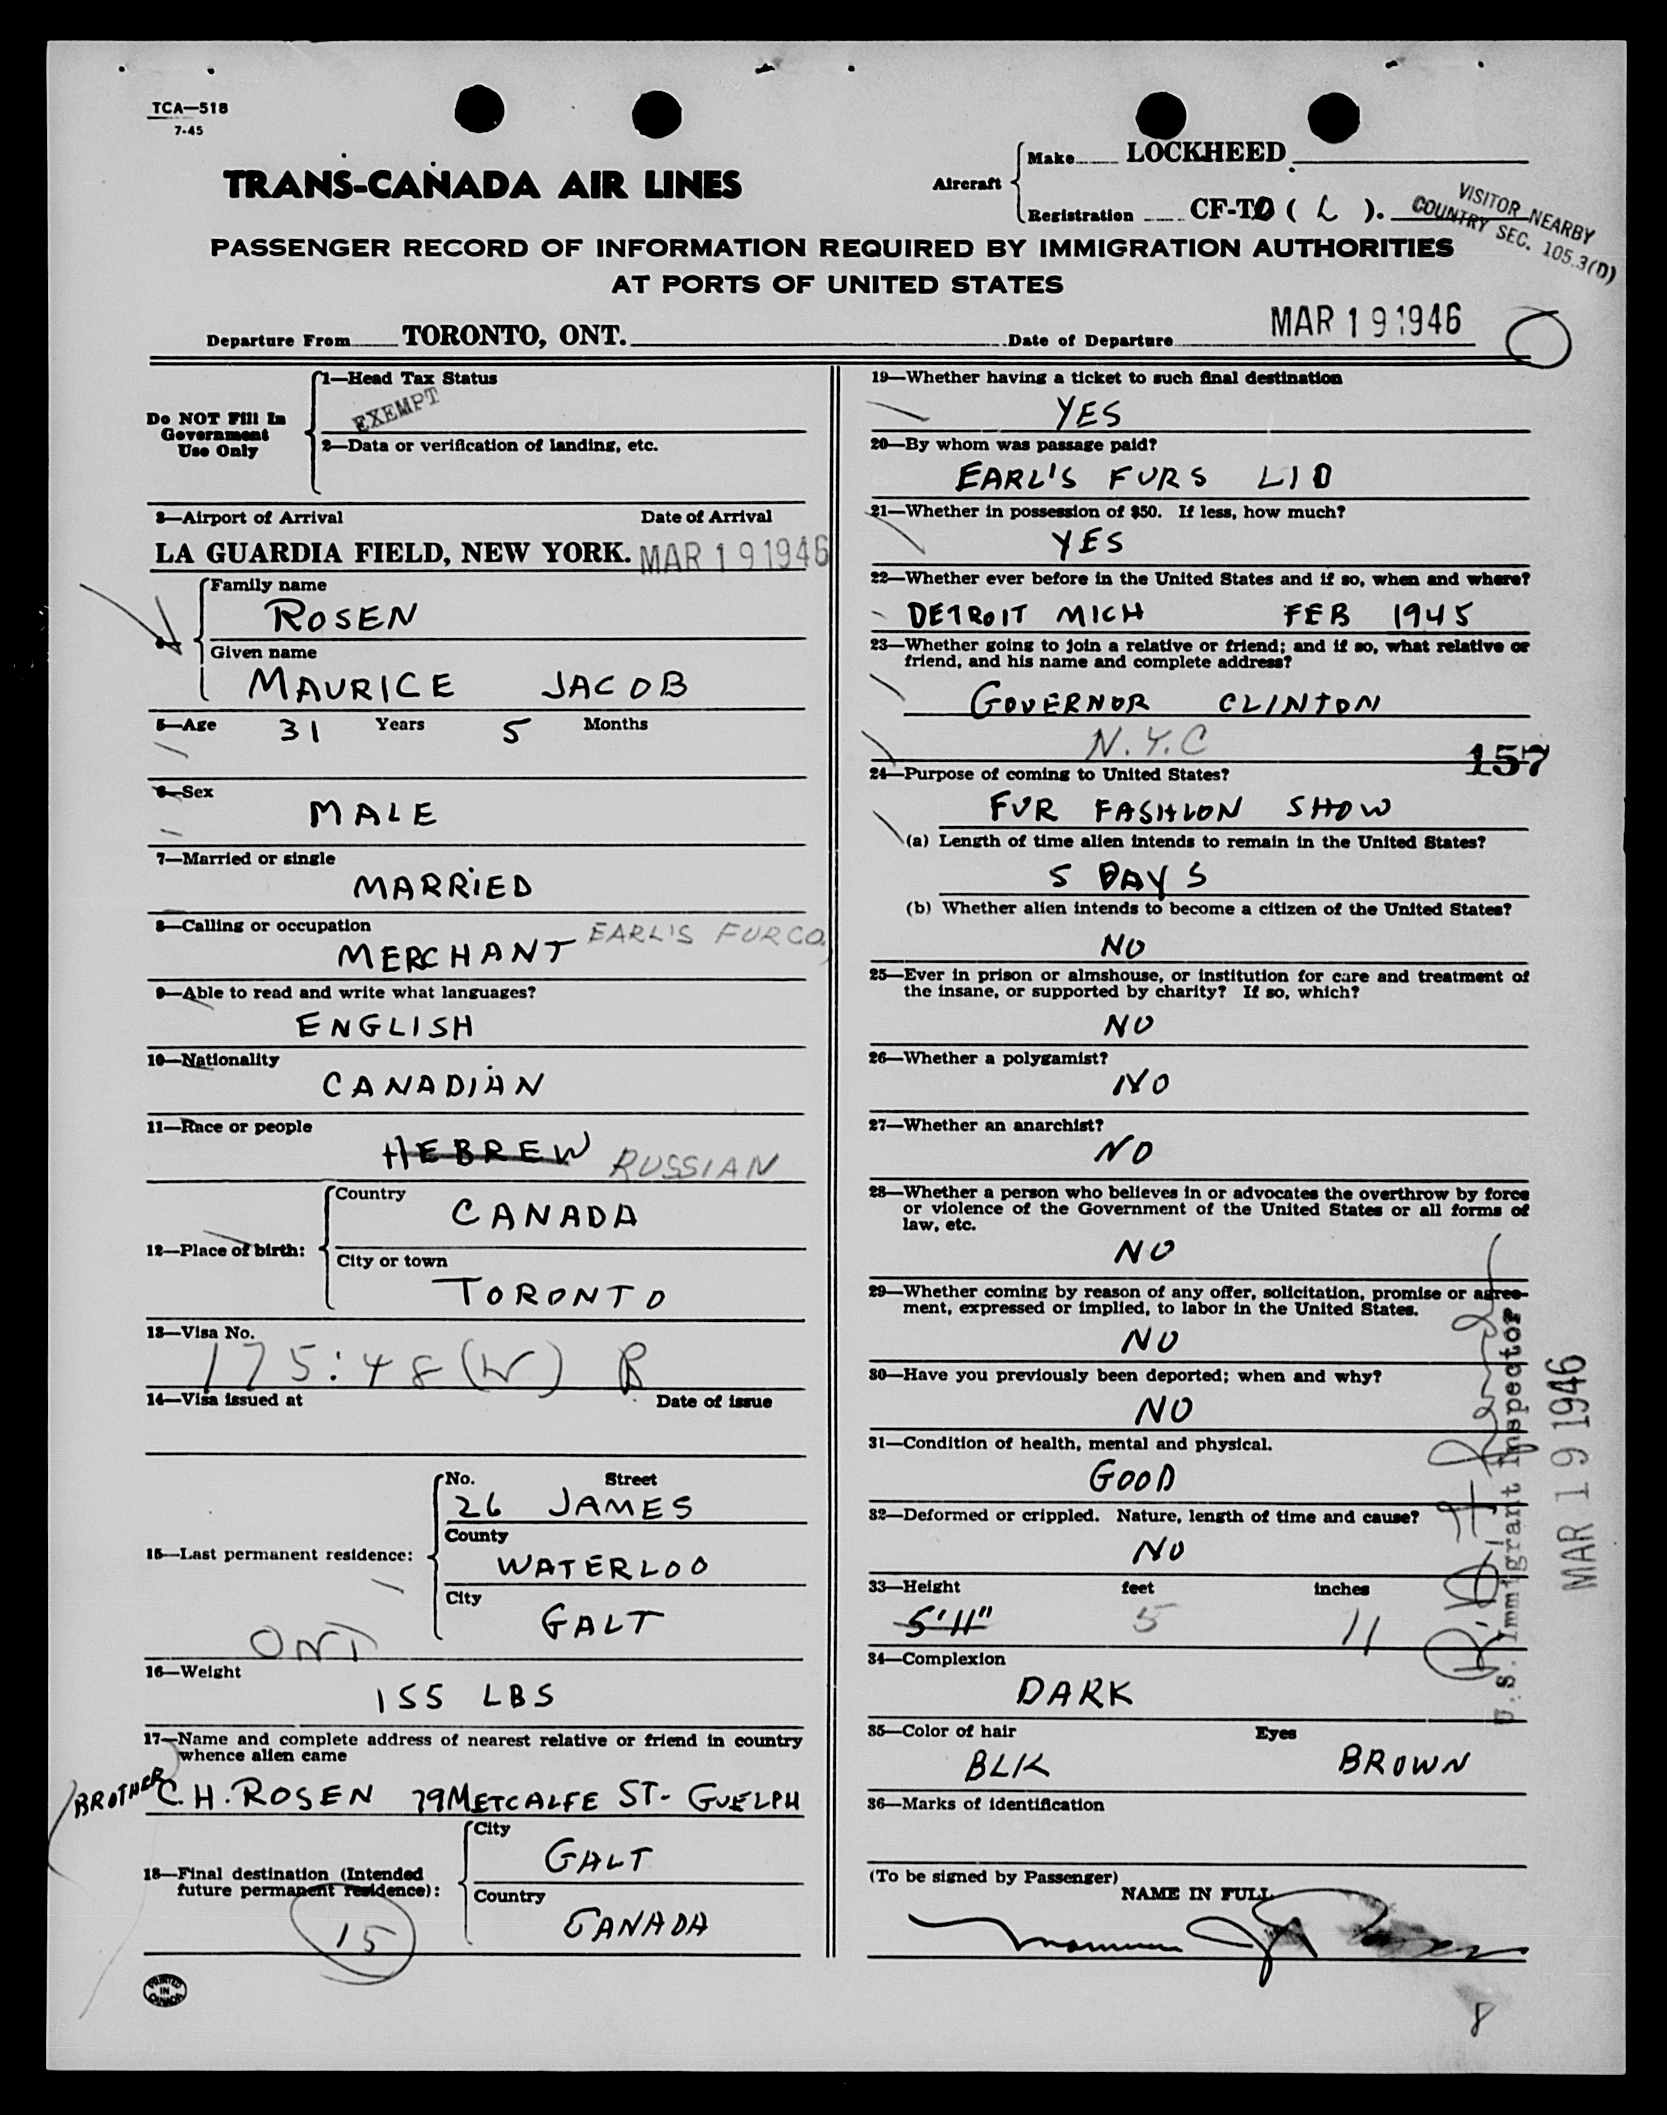 TCA—518
7-45
TRANS-CANADA AIR LINES
Aircraft
Make LOCKHEED
Registration CF-TD ( L ).
VISITOR NEARBY
COUNTRY SEC. 105.3(D)
PASSENGER RECORD OF INFORMATION REQUIRED BY IMMIGRATION AUTHORITIES
AT PORTS OF UNITED STATES
Departure From TORONTO, ONT. Date of Departure MAR 19 1946
Do NOT Fill In
Government
Use Only
1—Head Tax Status
EXEMPT
2—Data or verification of landing, etc.
3—Airport of Arrival Date of Arrival
LA GUARDIA FIELD, NEW YORK. MAR 19 1946
Family name
ROSEN
4—
Given name
MAURICE JACOB
5—Age 31 Years 5 Months
6—Sex
MALE
7—Married or single
MARRIED
8—Calling or occupation
MERCHANT EARL'S FUR CO.
9—Able to read and write what languages?
ENGLISH
10—Nationality
CANADIAN
11—Race or people
HEBREW RUSSIAN
12—Place of birth:
Country
CANADA
City or town
TORONTO
13—Visa No.
175:48(W) R
14—Visa issued at Date of issue
15—Last permanent residence:
No. Street
26 JAMES
County
WATERLOO
City
GALT
ONT
16—Weight
155 LBS
17—Name and complete address of nearest relative or friend in country
whence alien came
BROTHER C. H. ROSEN 79 METCALFE ST- GUELPH
18—Final destination (Intended
future permanent residence):
City
GALT
Country
CANADA
15
PRINTED
IN
CANADA
19—Whether having a ticket to such final destination
YES
20—By whom was passage paid?
EARL'S FURS LTD
21—Whether in possession of $50. If less, how much?
YES
22—Whether ever before in the United States and if so, when and where?
DETROIT MICH FEB 1945
23—Whether going to join a relative or friend; and if so, what relative or
friend, and his name and complete address?
GOVERNOR CLINTON
N.Y.C
157
24—Purpose of coming to United States?
FUR FASHION SHOW
(a) Length of time alien intends to remain in the United States?
5 DAYS
(b) Whether alien intends to become a citizen of the United States?
NO
25—Ever in prison or almshouse, or institution for care and treatment of
the insane, or supported by charity? If so, which?
NO
26—Whether a polygamist?
NO
27—Whether an anarchist?
NO
28—Whether a person who believes in or advocates the overthrow by force
or violence of the Government of the United States or all forms of
law, etc.
NO
29—Whether coming by reason of any offer, solicitation, promise or agree-
ment, expressed or implied, to labor in the United States.
NO
30—Have you previously been deported; when and why?
NO
31—Condition of health, mental and physical.
GOOD
32—Deformed or crippled. Nature, length of time and cause?
NO
33—Height feet inches
5'11" 5 11
34—Complexion
DARK
35—Color of hair Eyes
BLK BROWN
36—Marks of identification
(To be signed by Passenger)
NAME IN FULL
U.S. Immigrant Inspector
MAR 19 1946
8